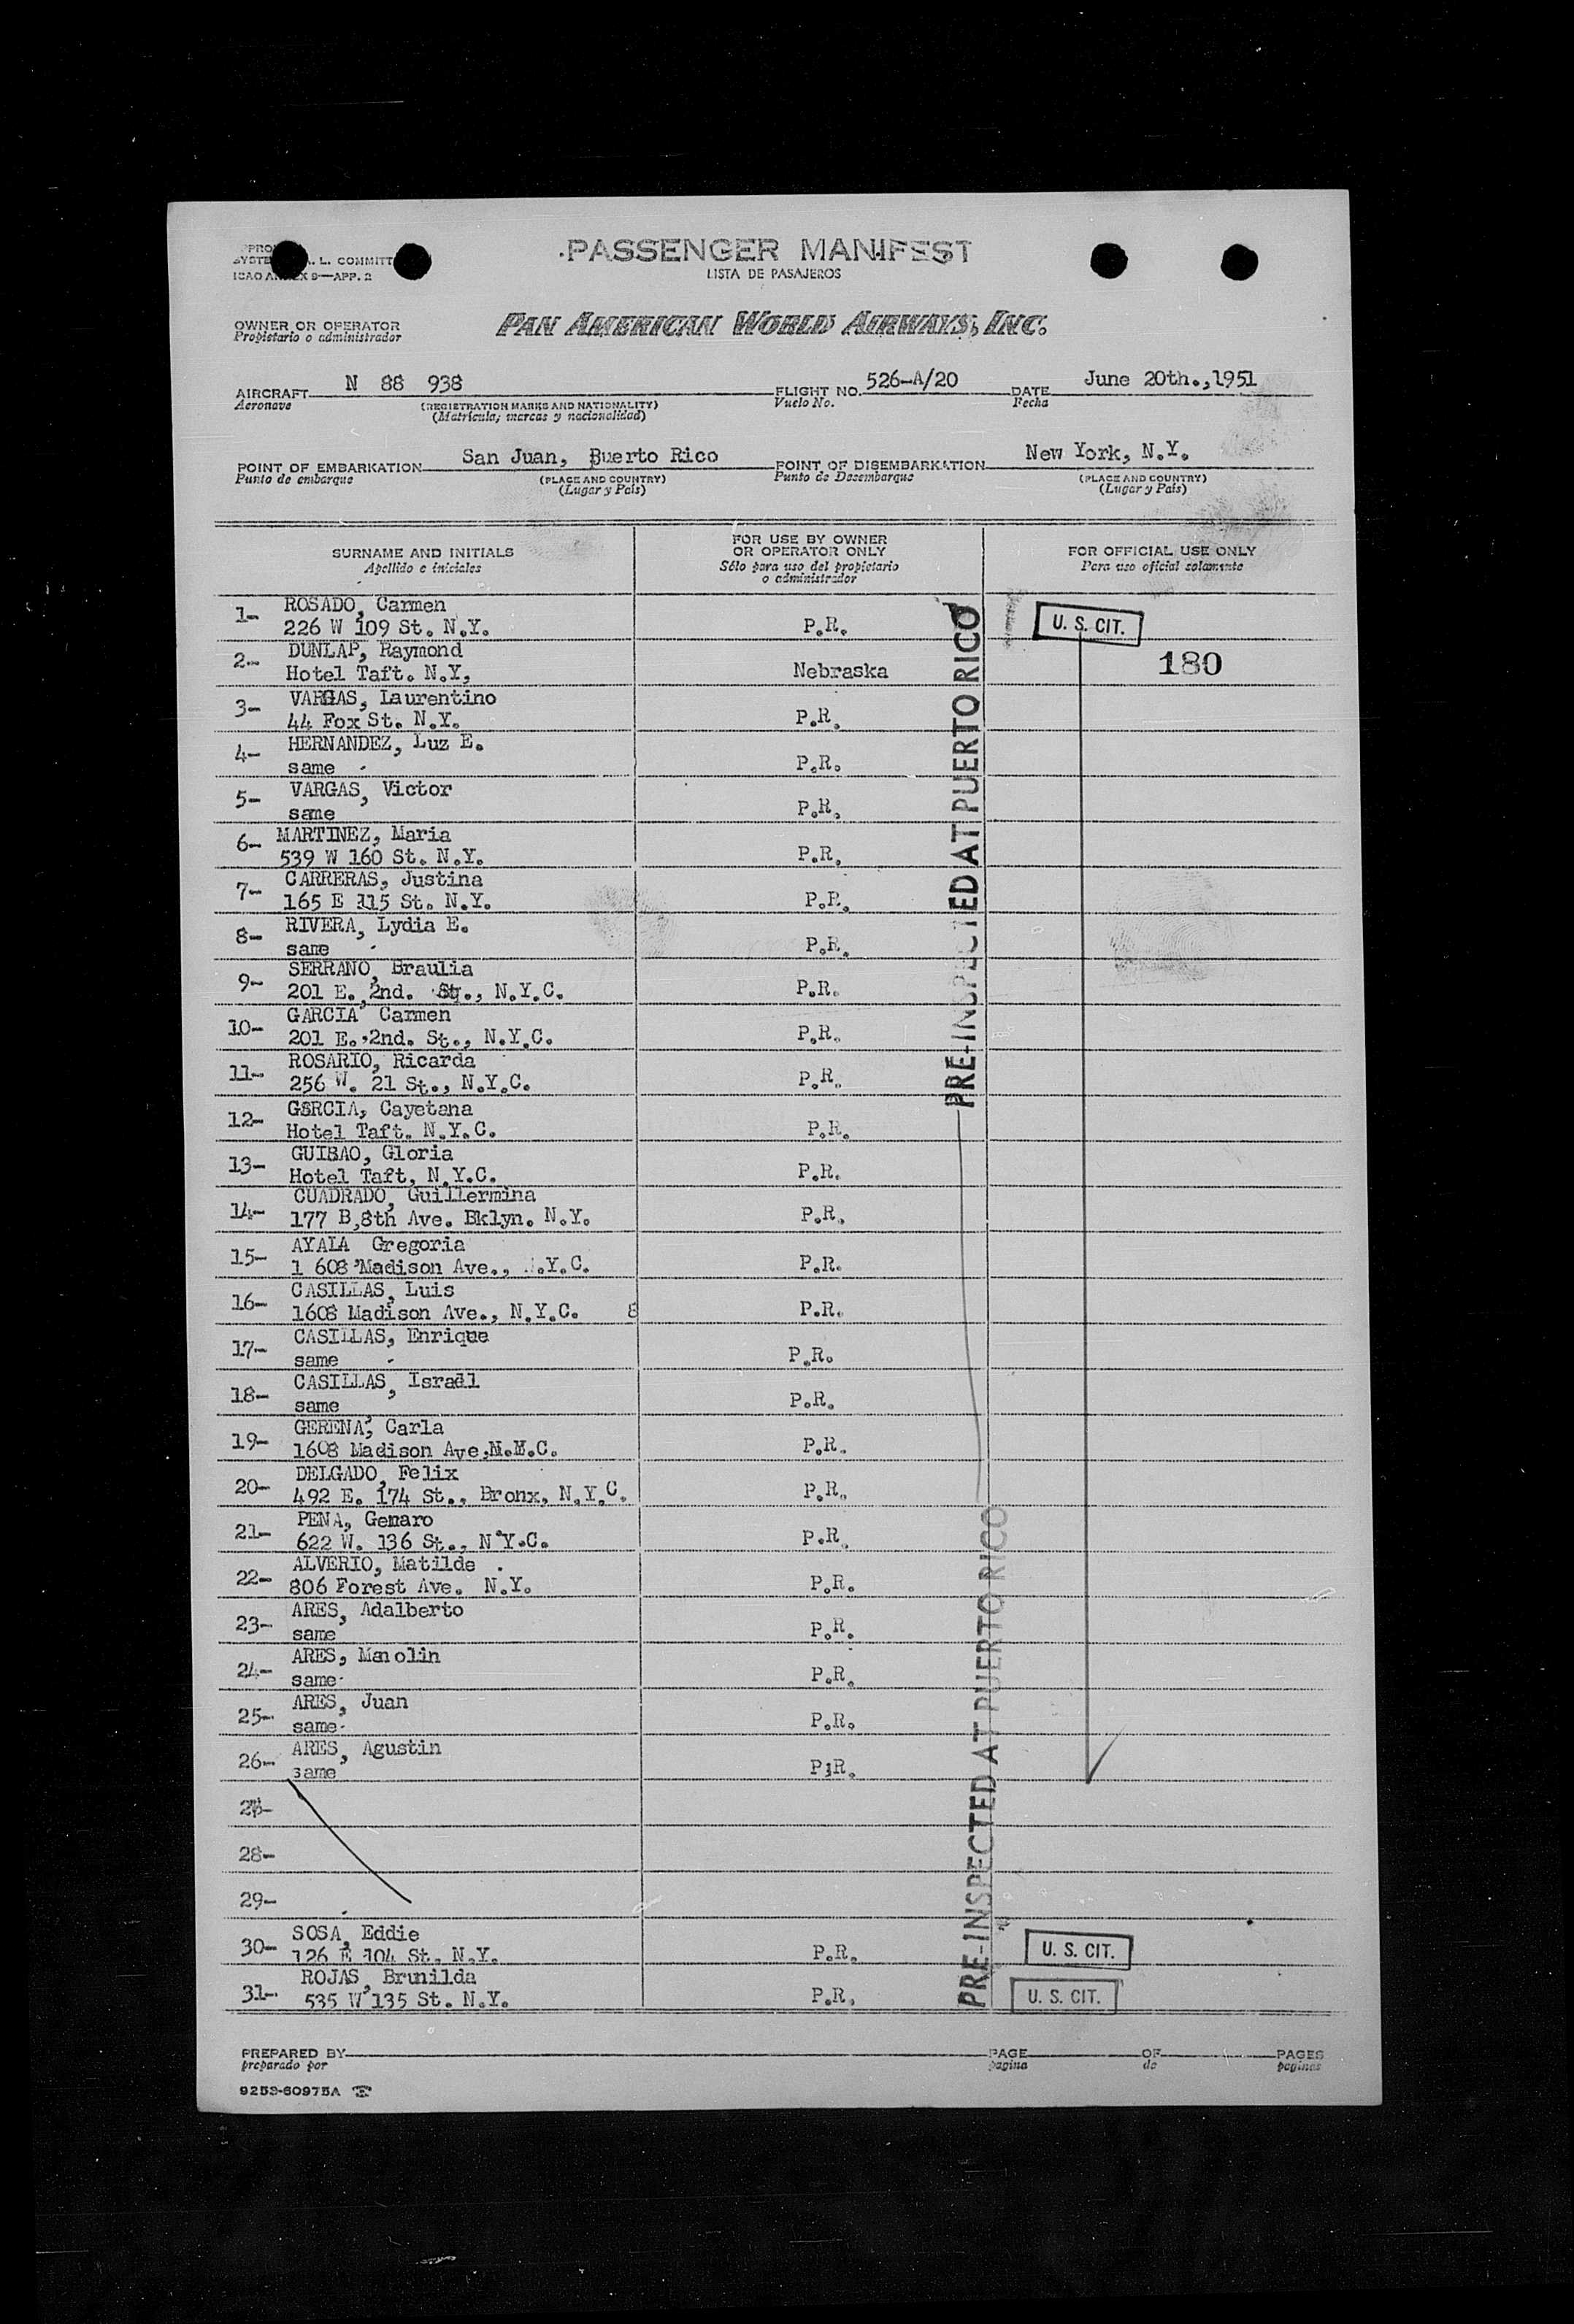 PASSENGER MANIFEST
LISTA DE PASAJEROS
A. L. COMMITT
ICAO ANNEX 9—APP. 2
OWNER OR OPERATOR
Propietario o administrador
PAN AMERICAN WORLD AIRWAYS, INC.
AIRCRAFT N 88 938 FLIGHT NO. 526-A/20 DATE June 20th.,1951
Aeronave (REGISTRATION MARKS AND NATIONALITY) Vuelo No. Fecha
(Matrícula; marcas y nacionalidad)
POINT OF EMBARKATION San Juan, Puerto Rico POINT OF DISEMBARKATION New York, N.Y.
Punto de embarque (PLACE AND COUNTRY) Punto de Desembarque (PLACE AND COUNTRY)
(Lugar y País) (Lugar y País)
SURNAME AND INITIALS
Apellido e iniciales
FOR USE BY OWNER
OR OPERATOR ONLY
Sólo para uso del propietario
o administrador
FOR OFFICIAL USE ONLY
Para uso oficial solamente
1- ROSADO, Carmen
226 W 109 St. N.Y. P.R. U. S. CIT.
2- DUNLAP, Raymond
Hotel Taft. N.Y, Nebraska 180
3- VARGAS, Laurentino
44 Fox St. N.Y. P.R.
4- HERNANDEZ, Luz E.
same P.R.
5- VARGAS, Victor
same P.R.
6- MARTINEZ, Maria
539 W 160 St. N.Y. P.R.
7- CARRERAS, Justina
165 E 115 St. N.Y. P.R.
8- RIVERA, Lydia E.
same P.R.
9- SERRANO, Braulia
201 E. 2nd. St., N.Y.C. P.R.
10- GARCIA, Carmen
201 E. 2nd. St., N.Y.C. P.R.
11- ROSARIO, Ricarda
256 W. 21 St., N.Y.C. P.R.
12- GSRCIA, Cayetana
Hotel Taft. N.Y.C. P.R.
13- GUIBAO, Gloria
Hotel Taft, N.Y.C. P.R.
14- CUADRADO, Guillermina
177 B,8th Ave. Bklyn. N.Y. P.R.
15- AYALA, Gregoria
1 608 Madison Ave., N.Y.C. P.R.
16- CASILLAS, Luis
1608 Madison Ave., N.Y.C. 8 P.R.
17- CASILLAS, Enrique
same P.R.
18- CASILLAS, Israel
same P.R.
19- GERENA, Carla
1608 Madison Ave,N.Y.C. P.R.
20- DELGADO, Felix
492 E. 174 St., Bronx, N.Y.C. P.R.
21- PENA, Genaro
622 W. 136 St., N.Y.C. P.R.
22- ALVERIO, Matilde
806 Forest Ave. N.Y. P.R.
23- ARES, Adalberto
same P.R.
24- ARES, Manolin
same P.R.
25- ARES, Juan
same P.R.
26- ARES, Agustin
same P.R.
27-
28-
29-
30- SOSA, Eddie
126 E 104 St. N.Y. P.R. U. S. CIT.
31- ROJAS, Brunilda
535 W 135 St. N.Y. P.R. U. S. CIT.
PRE-INSPECTED AT PUERTO RICO
PRE-INSPECTED AT PUERTO RICO
PREPARED BY PAGE OF PAGES
preparado por pagina de paginas
9253-60975A